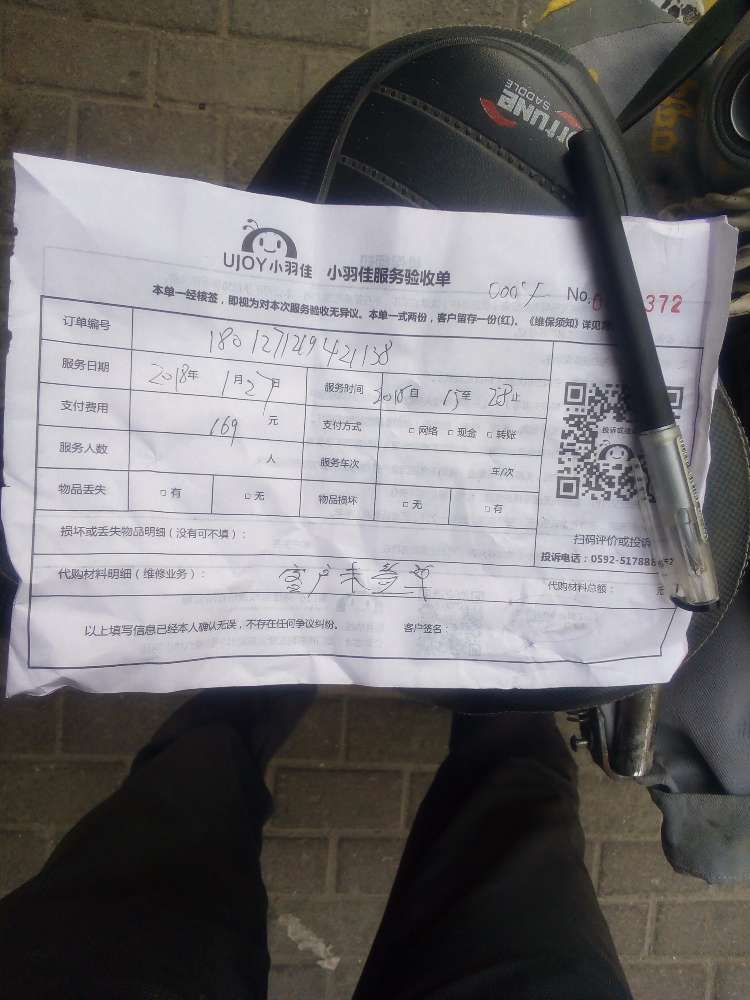 Fortune
SADDLE
UJOY小羽佳 小羽佳服务验收单 No. 372
本单一经核签,即视为对本次服务验收无异议。本单一式两份,客户留存一份(红)。《维保须知》详见
订单编号 180127129421138
服务日期 2018年 1月27日 服务时间 自 至 止
支付费用 169 元 支付方式 □ 网络 □ 现金 □ 转账
服务人数 人 服务车次 车/次
物品丢失 □ 有 □ 无 物品损坏 □ 无 □ 有
损坏或丢失物品明细(没有可不填):
扫码评价或投诉
投诉电话:0592-51788
代购材料明细(维修业务): 客户未签单 代购材料总额: 元
以上填写信息已经本人确认无误,不存在任何争议纠纷。 客户签名: